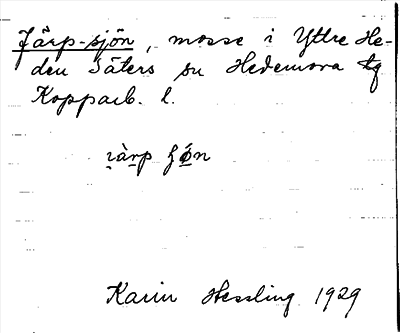 Järp-sjön, mosse i Yttre He-
den Säters sn Hedemora tg
Kopparb. l.
Karin Hessling 1929